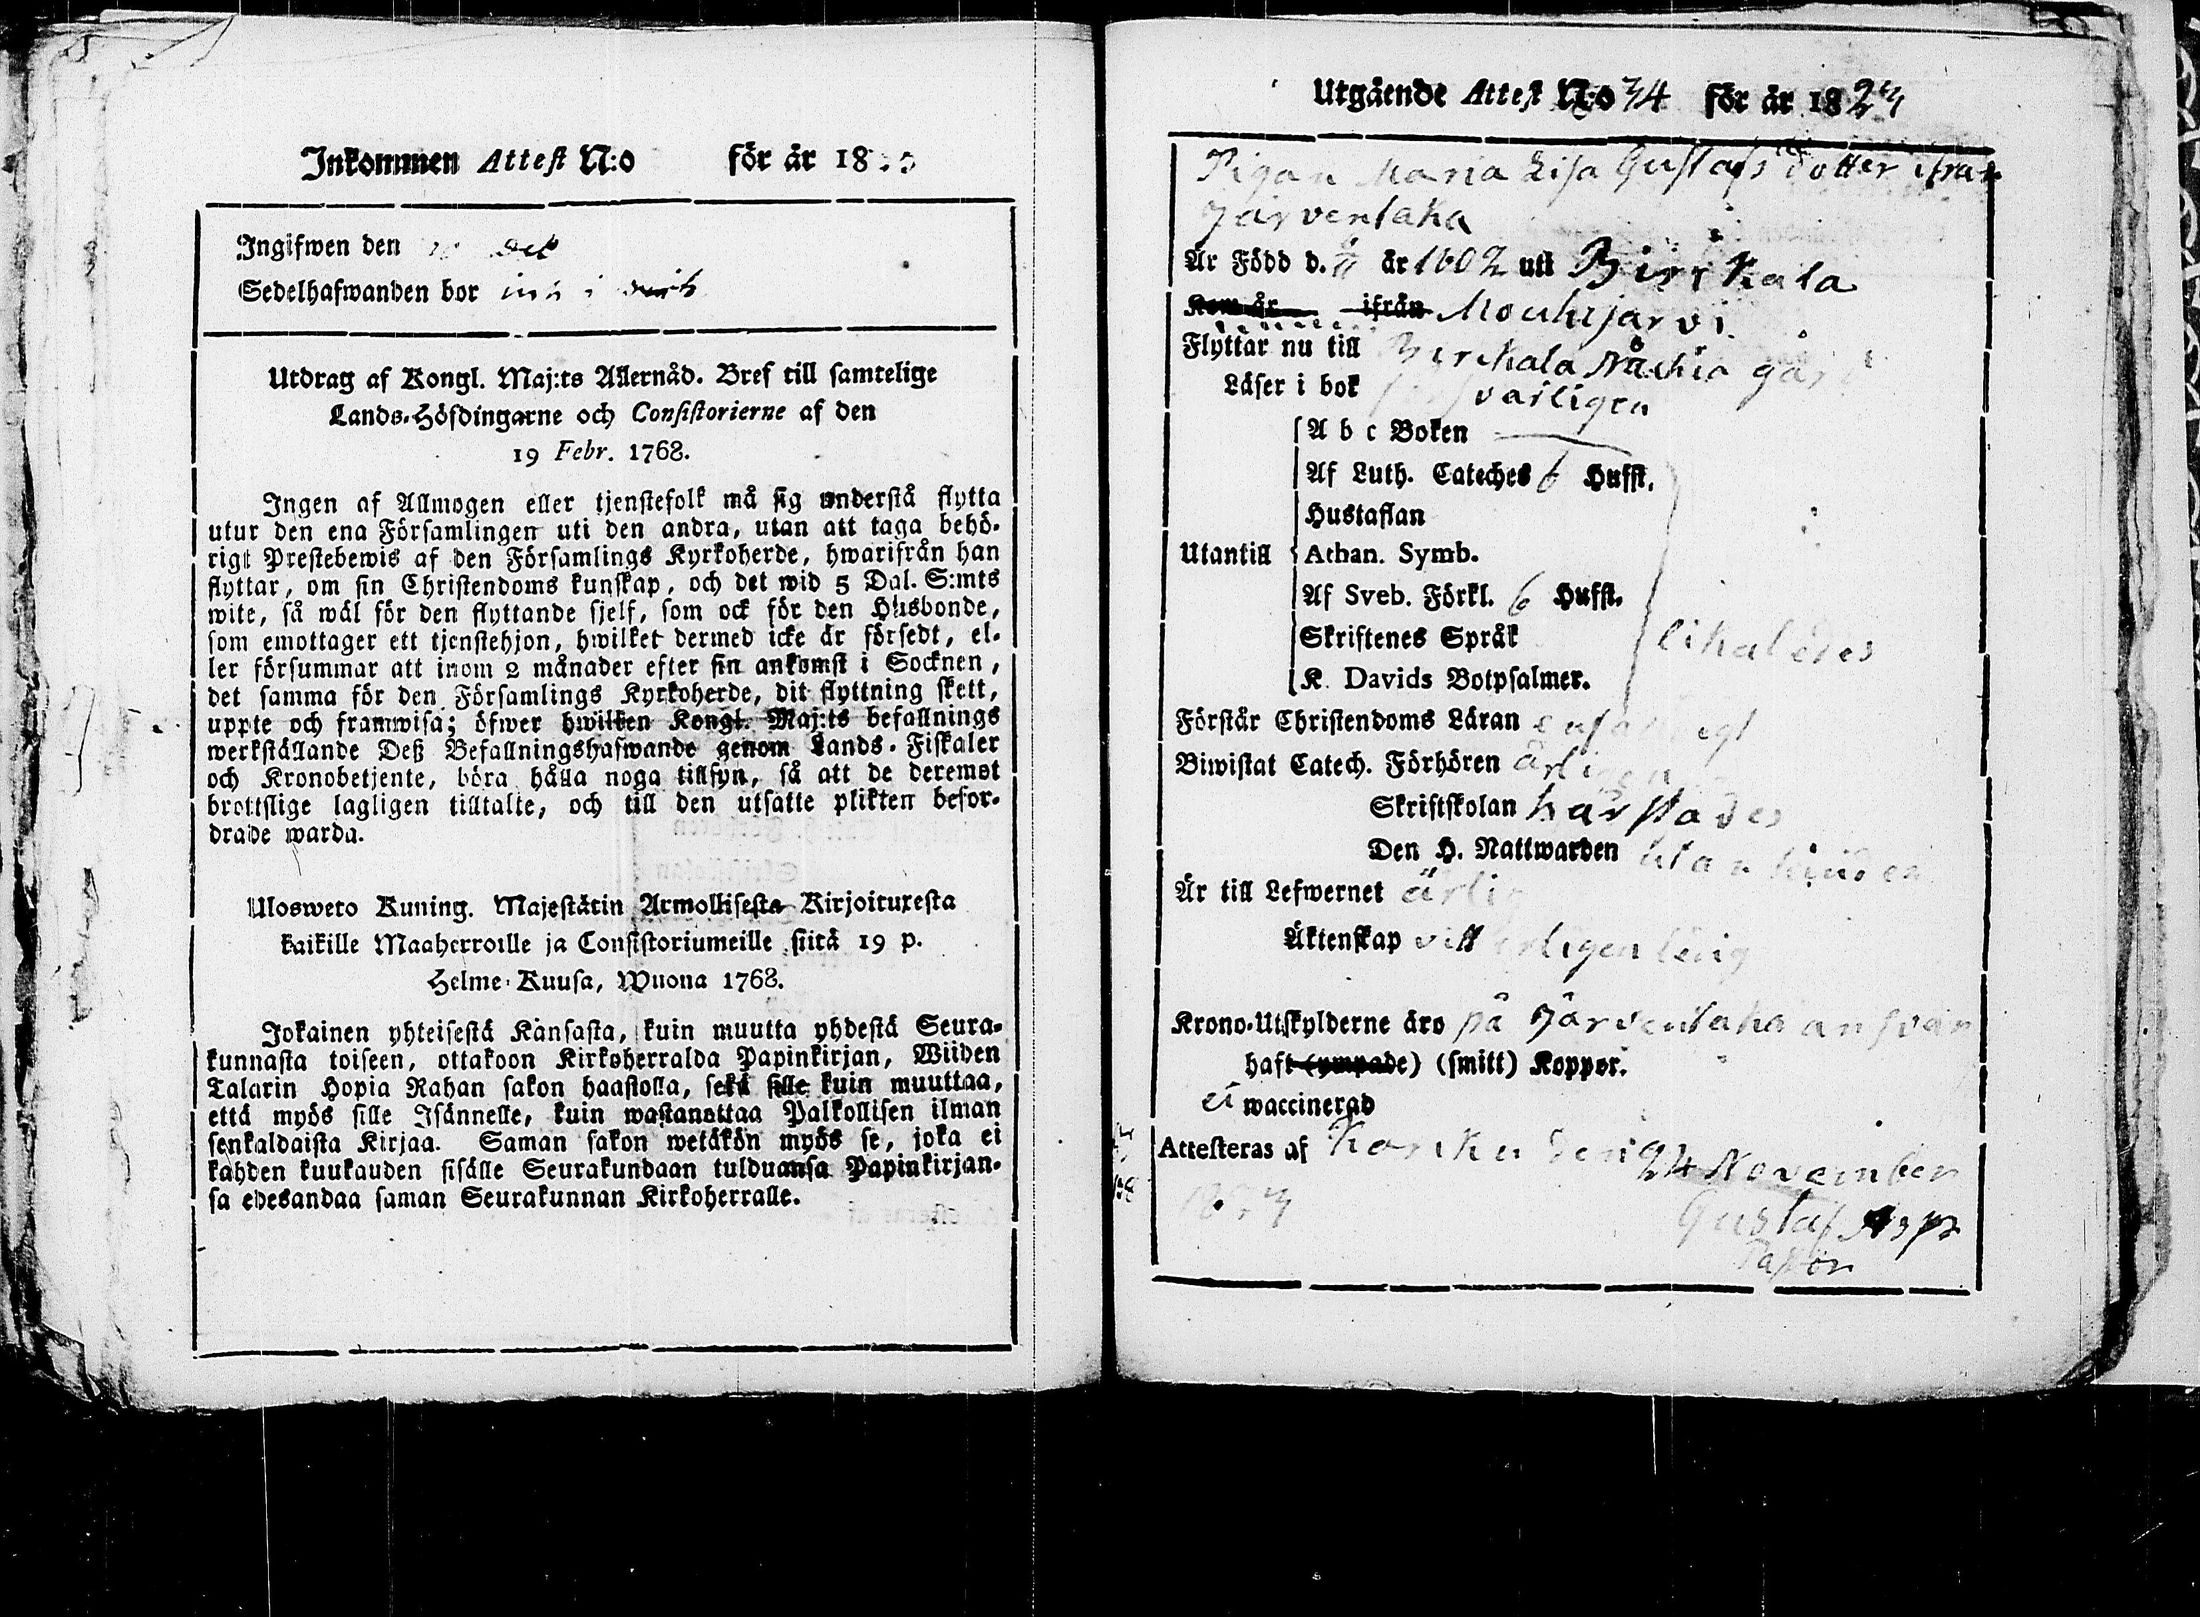 Inkommen Attest N:o för år 18
Ingifwen den
Sedelhafwanden bor
Utdrag af Kongl. Maj:ts Allernåd. Bref till samtelige
Lands-Höfdingarne och Consistorierne af den
19 Febr. 1768.
Ingen af Allmogen eller tjenstefolk må sig understå flytta
utur den ena Församlingen uti den andra, utan att taga behö-
rigt Prestebewis af den Församlings Kyrkoherde, hwarifrån han
flyttar, om sin Christendoms kunskap, och det wid 5 Dal. S:mts
wite, så wäl för den flyttande sjelf, som ock för den Husbonde,
som emottager ett tjenstehjon, hwilket dermed icke är försedt, el-
ler försummar att inom 2 månader efter sin ankomst i Socknen,
det samma för den Församlings Kyrkoherde, dit flyttning skett,
uppte och framwisa; öfwer hwilken Kongl. Maj:ts befallnings
werkställande Deß Befallningshafwande genom Lands-Fiskaler
och Kronobetjente, böra hålla noga tillsyn, så att de deremot
brottslige lagligen tilltalte, och till den utsatte plikten befor-
drade warda.
Ulosweto Kuning. Majestätin Armollisesta Kirjoituxesta
kaikille Maaherroille ja Consistoriumeille siitä 19 p.
Helme-Kuusa, Wuona 1768.
Jokainen yhteisestä Kansasta, kuin muutta yhdestä Seura-
kunnasta toiseen, ottakoon Kirkoherralda Papinkirjan, Wiiden
Talarin Hopia Rahan sakon haastolla, sekä sille kuin muuttaa,
että myös sille Isännelle, kuin wastanottaa Palkollisen ilman
senkaldaista Kirjaa. Saman sakon wetäkön myös se, joka ei
kahden kuukauden sisälle Seurakundaan tulduansa Papinkirjan-
sa edesandaa saman Seurakunnan Kirkoherralle.
Utgående Attest N:o 74 för år 182
Pigan Maria Lisa Gustafs dotter ifrån
Järventaka
Är Född d. år 1802 uti Birkala
Kom år ifrån Mouhijärvi
Flyttar nu till Birckala Nåckia gård
Läser i bok varligen
A b c Boken
Af Luth. Cateches 6 Hufst.
Hustaflan
Utantill Athan. Symb.
Af Sveb. Förkl. 6 Hufst.
Skriftenes Språk likaledes
K. Davids Botpsalmer.
Förstår Christendoms Läran enfaldigt
Biwistat Catech. Förhören årligen
Skriftskolan härstädes
Den H. Nattwarden utan hinder
Är till Lefwernet ärlig
Äktenskap vitterligen ledig
Krono-Utskylderne äro på Järventaka ansvar
haft (ympade) (smitt) Koppor.
ei waccinerad
Attesteras af Karcku den 24 November
Gustaf
Pastor